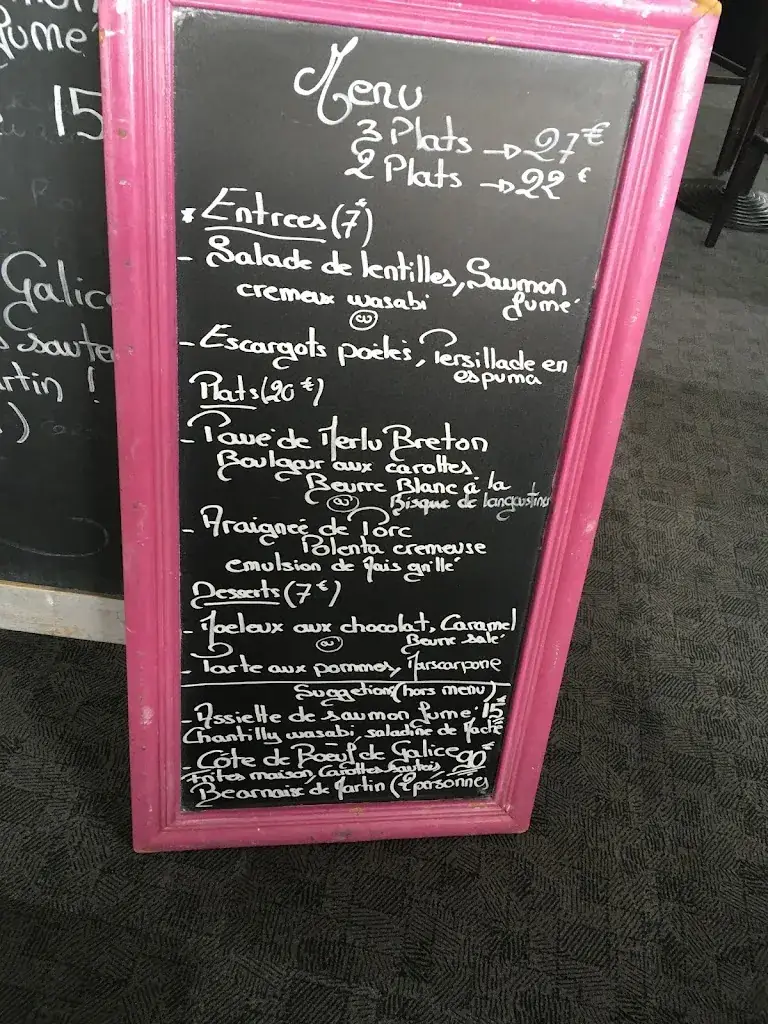 fumé
15
Galice
saute
rtin !
)
Menu
3 Plats → 27€
2 Plats → 22€
* Entrees (7€)
- Salade de lentilles, Saumon
cremeux wasabi fumé
ou
- Escargots poëlés, Persillade en
espuma
Plats (20€)
- Pavé de Merlu Breton
Boulgour aux carottes
Beurre Blanc à la
ou Bisque de langoustines
- Araigneé de Porc
Polenta cremeuse
emulsion de Mais grillé
Desserts (7€)
- Moeleux aux chocolat, Caramel
ou Beurre salé
- Tarte aux pommes, Mascarpone
Suggetion (hors menu)
- Assiette de saumon fumé, 15€
Chantilly wasabi, saladine de Mache
- Côte de Boeuf de Galice 90€
Frites maison, Carottes sautés,
Bearnaise de Martin (2 personnes